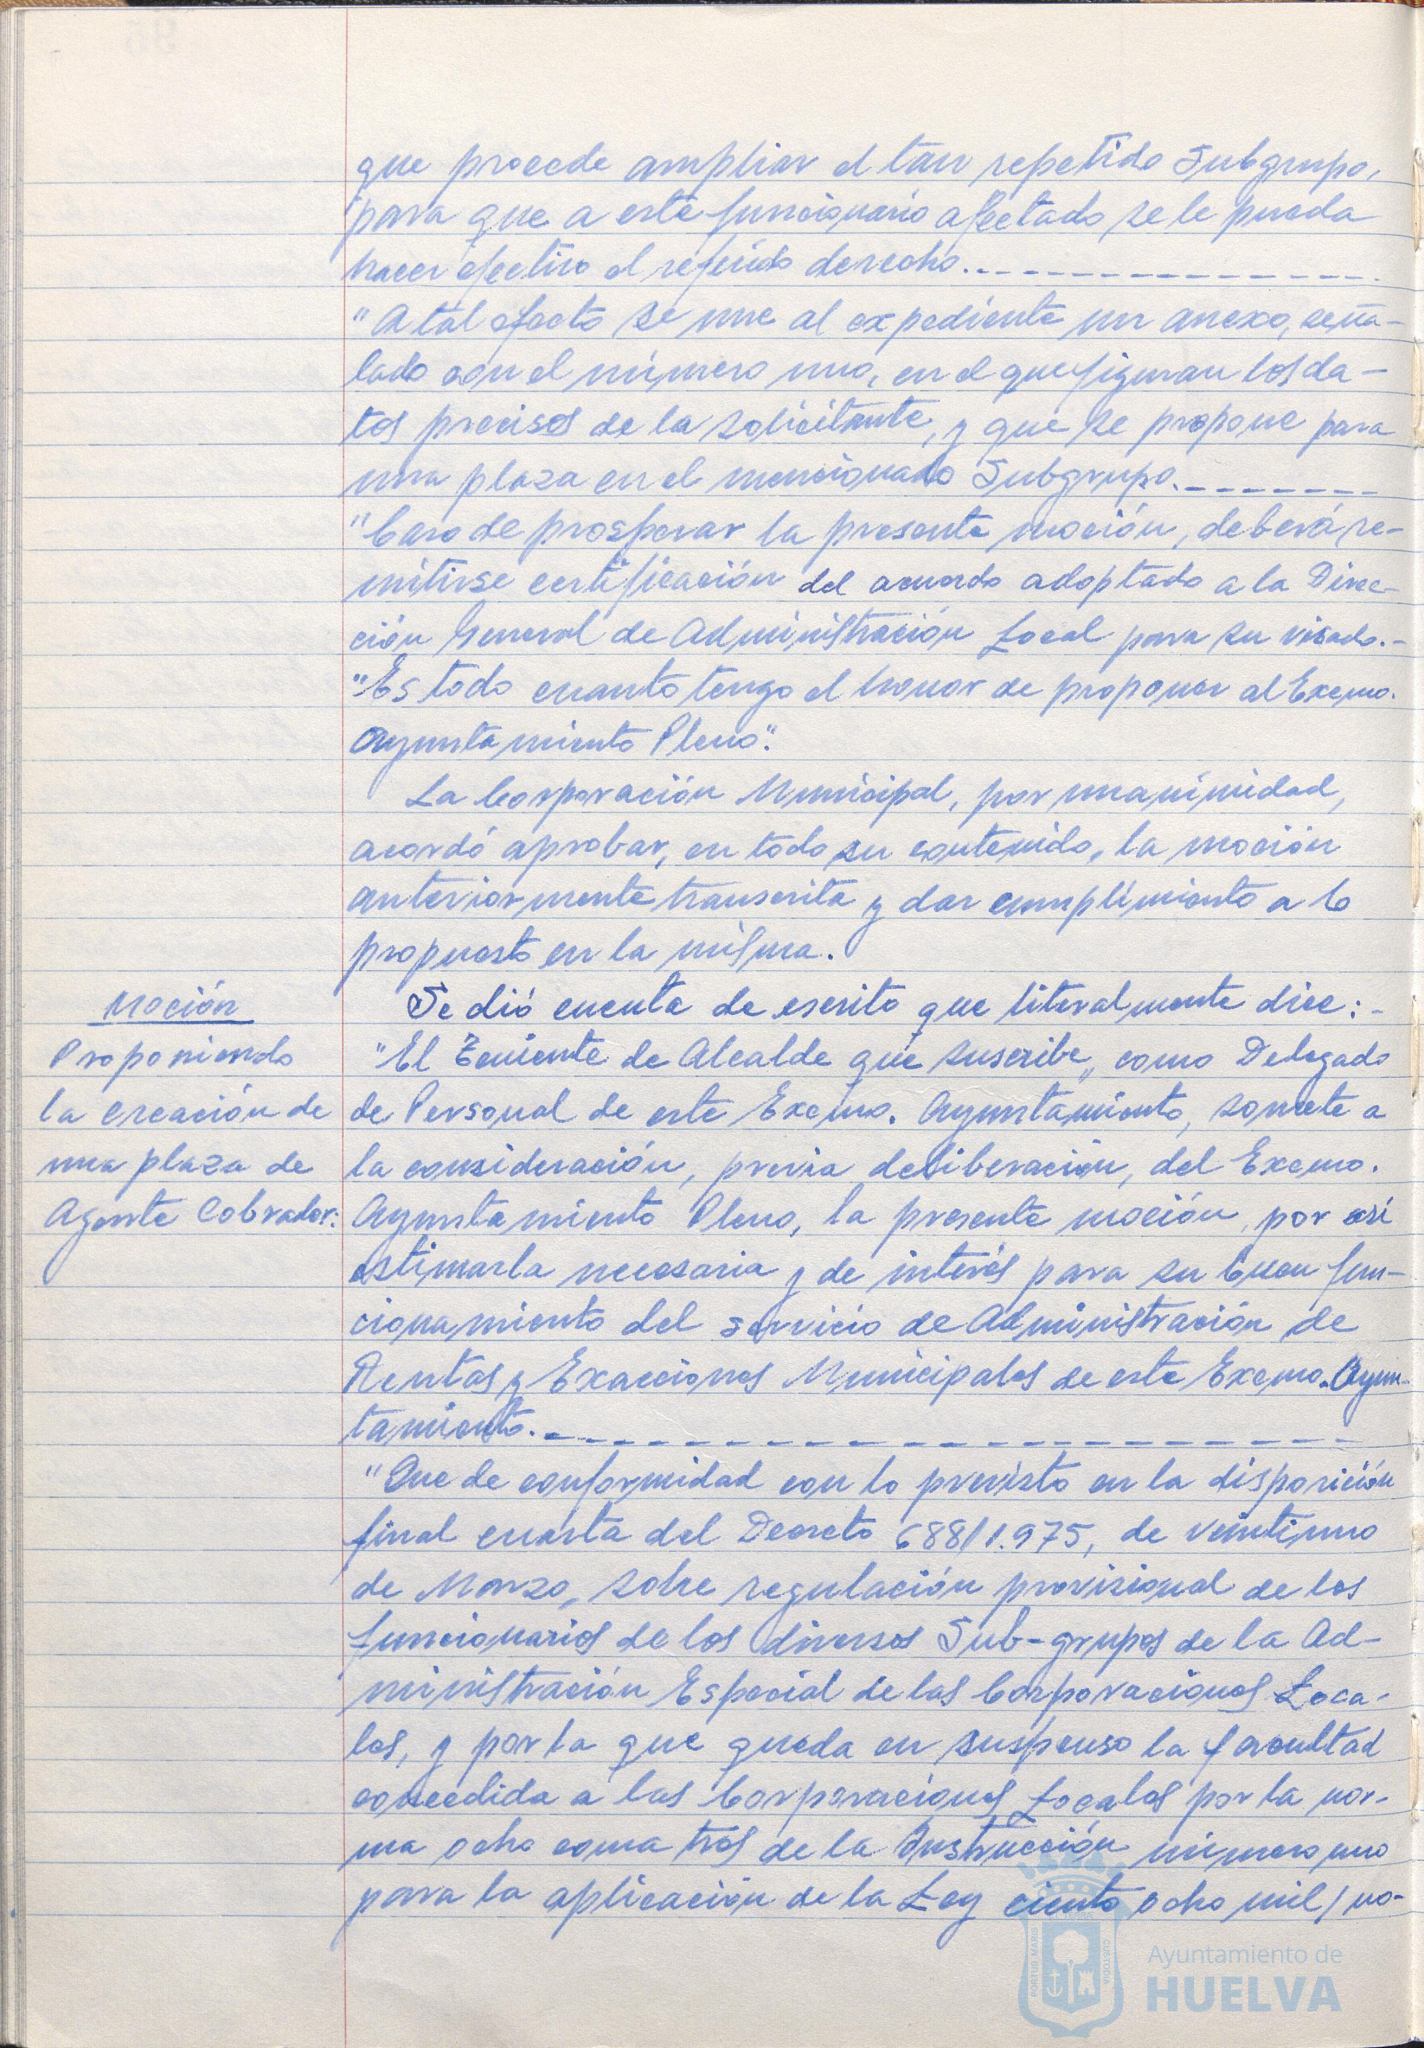 que procede ampliar el tan repetido Subgrupo,
para que a este funcionario afectado se le pueda
hacer efectivo el referido derecho.
"A tal efecto se une al expediente un anexo, seña-
lado con el número uno, en el que figuran los da-
tos precisos de la solicitante, y que se propone para
una plaza en el mencionado Subgrupo.
"Caso de prosperar la presente moción, deberá re-
mitirse certificación del acuerdo adoptado a la Direc-
ción General de Administración Local para su visado.-
"Es todo cuanto tengo el honor de proponer al Excmo.
Ayuntamiento Pleno".
La Corporación Municipal, por unanimidad,
acordó aprobar, en todo su contenido, la moción
anteriormente transcrita y dar cumplimiento a lo
propuesto en la misma.
Moción
Proponiendo
la creación de
una plaza de
Agente Cobrador:
Se dió cuenta de escrito que literalmente dice:-
"El Teniente de Alcalde que suscribe, como Delegado
de Personal de este Excmo. Ayuntamiento, somete a
la consideración, previa deliberación, del Excmo.
Ayuntamiento Pleno, la presente moción, por así
estimarla necesaria y de interés para su buen fun-
cionamiento del servicio de Administración de
Rentas y Exacciones Municipales de este Excmo. Ayun-
tamiento.
"Que de conformidad con lo previsto en la disposición
final cuarta del Decreto 688/1.975, de veintiuno
de Marzo, sobre regulación provisional de los
funcionarios de los diversos Sub-grupos de la Ad-
ministración Especial de las Corporaciones Loca-
les, y por la que queda en suspenso la facultad
concedida a las Corporaciones Locales por la nor-
ma ocho coma tres de la Instrucción número uno
para la aplicación de la Ley ciento ocho mil/no-
PORTUS MARIS
CUSTODIA
Ayuntamiento de
HUELVA